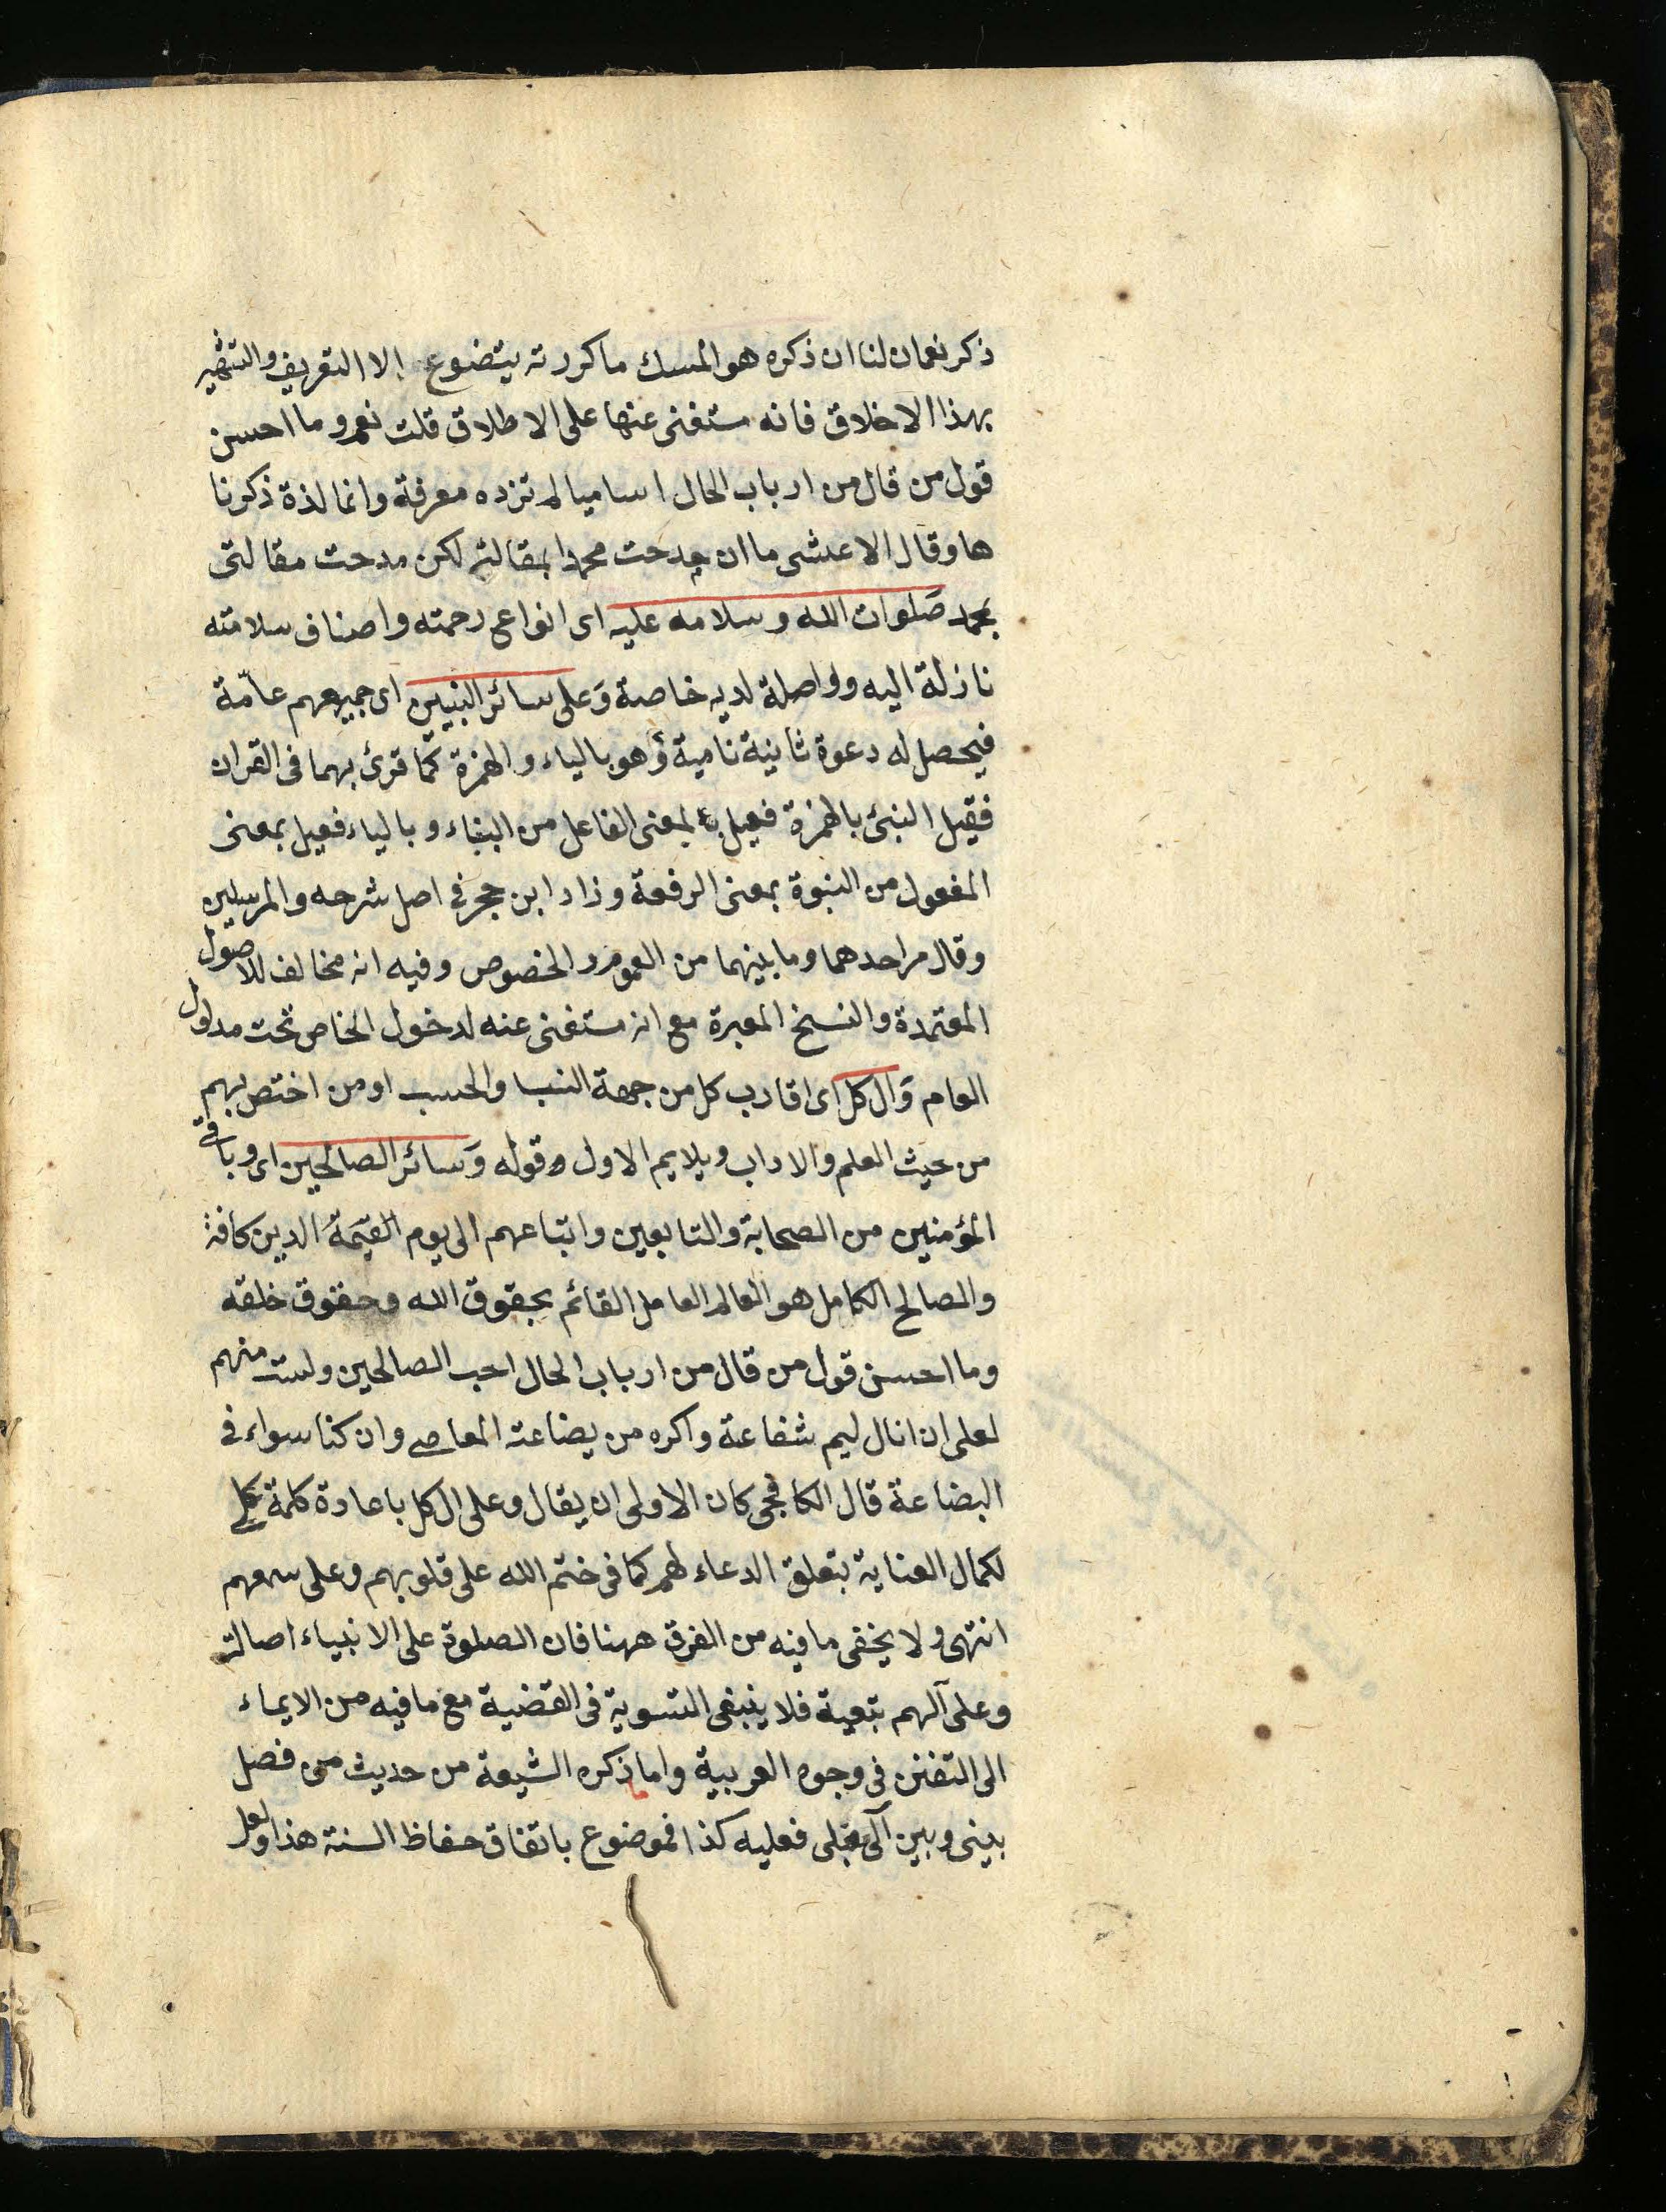 ذكر نعمان لنا ان ذكره هو المسك ما كررته يتضوع الا التعريف والتشهير
بهذا الاخلاق فانه مستغنى عنها على الاطلاق قلت نعم وما احسن
قول من قال من ارباب الحال اساميا لم تزده معرفة وانما لذة ذكرنا
ها وقال الاعشى ما ان مدحت محمدا بمقالتى لكن مدحت مقالتى
بمحمد صلوات الله وسلامه عليه اى انواع رحمته واصناف سلامته
نازلة اليه وواصلة لديه خاصة وَعلى سائر النبيين اى جميعهم عامّة
فيحصل له دعوة ثانية نامية وهو بالياء والهمزة كما قرئ بهما فى القران
فقيل النبئ بالهمزة فعيل بمعنى الفاعل من النباء وبالياء فعيل بمعنى
المفعول من النبوة بمعنى الرفعة وزاد ابن حجر في اصل شرحه والمرسلين
وقال مر احدهما وما بينهما من العموم والخصوص وفيه انه مخالف للاصول
المعتمدة والنسخ المعبرة مع انه مستغنى عنه لدخول الخاص تحت مدلول
العام وَال كل اى اقارب كل من جهة النسب والحسب او من اختص بهم
من حيث العلم والاداب ويلايم الاول قوله وَسائر الصالحين اى وباقي
المؤمنين من الصحابة والتابعين واتباعهم الى يوم القيمة الدين كافة
والصالح الكامل هو العالم العامل القائم بحقوق الله وحقوق خلقه
وما احسن قول من قال من ارباب الحال احب الصالحين ولست منهم
لعلى ان انال لهم شفاعة واكره من بضاعته المعاصي وان كنا سواء في
البضاعة قال الكافجى كان الاولى ان يقال وعلى ال كل باعادة كلمة على
لكمال العناية بتعلق الدعاء لهم كما فى ختم الله على قلوبهم وعلى سمعهم
انتهى ولا يخفى ما فيه من الفرق ههنا فان الصلوة على الانبياء اصالة
وعلى آلهم تبعية فلا ينبغى التسوية فى القضية مع ما فيه من الايماء
الى التفنن فى وجوه العربية واما ذكره الشيعة من حديث من فصل
بينى وبين آلى بعلى فعليه كذا فموضوع باتفاق حفاظ السنة هذا ولعل